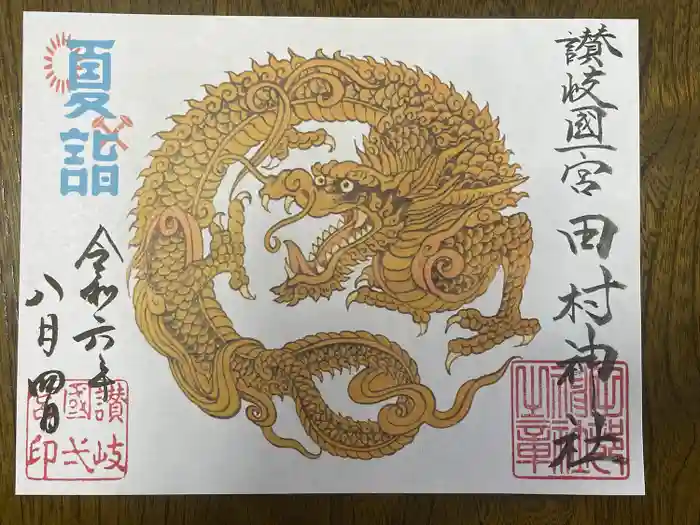 讃岐國一宮 田村神社
夏詣
令和六年
八月四日
讃岐
國弌
宮印
神社
之章